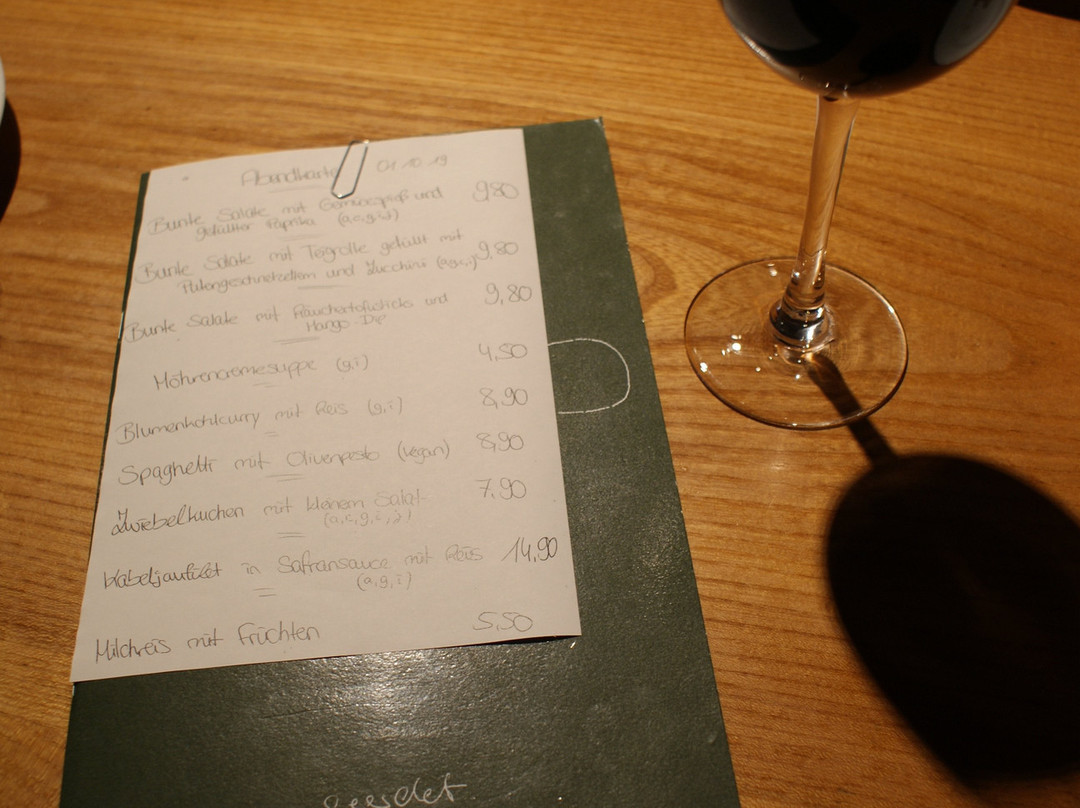 Abendkarte 01.10.19
Bunte Salate mit Gemüsespieß und 9,80
gefüllter Paprika (a,c,g,i,j)
Bunte Salate mit Teigrolle gefüllt mit 9,80
Putengeschnetzeltem und Zucchini (a,g,i,j)
Bunte Salate mit Räuchertofusticks und 9,80
Mango-Dip
Möhrencremesuppe (g,i) 4,50
Blumenkohlcurry mit Reis (g,i) 8,90
Spaghetti mit Olivenpesto (vegan) 8,90
Zwiebelkuchen mit kleinem Salat 7,90
(a,c,g,i,j)
Kabeljaufilet in Safransauce mit Reis 14,90
(a,g,i)
Milchreis mit Früchten 5,50